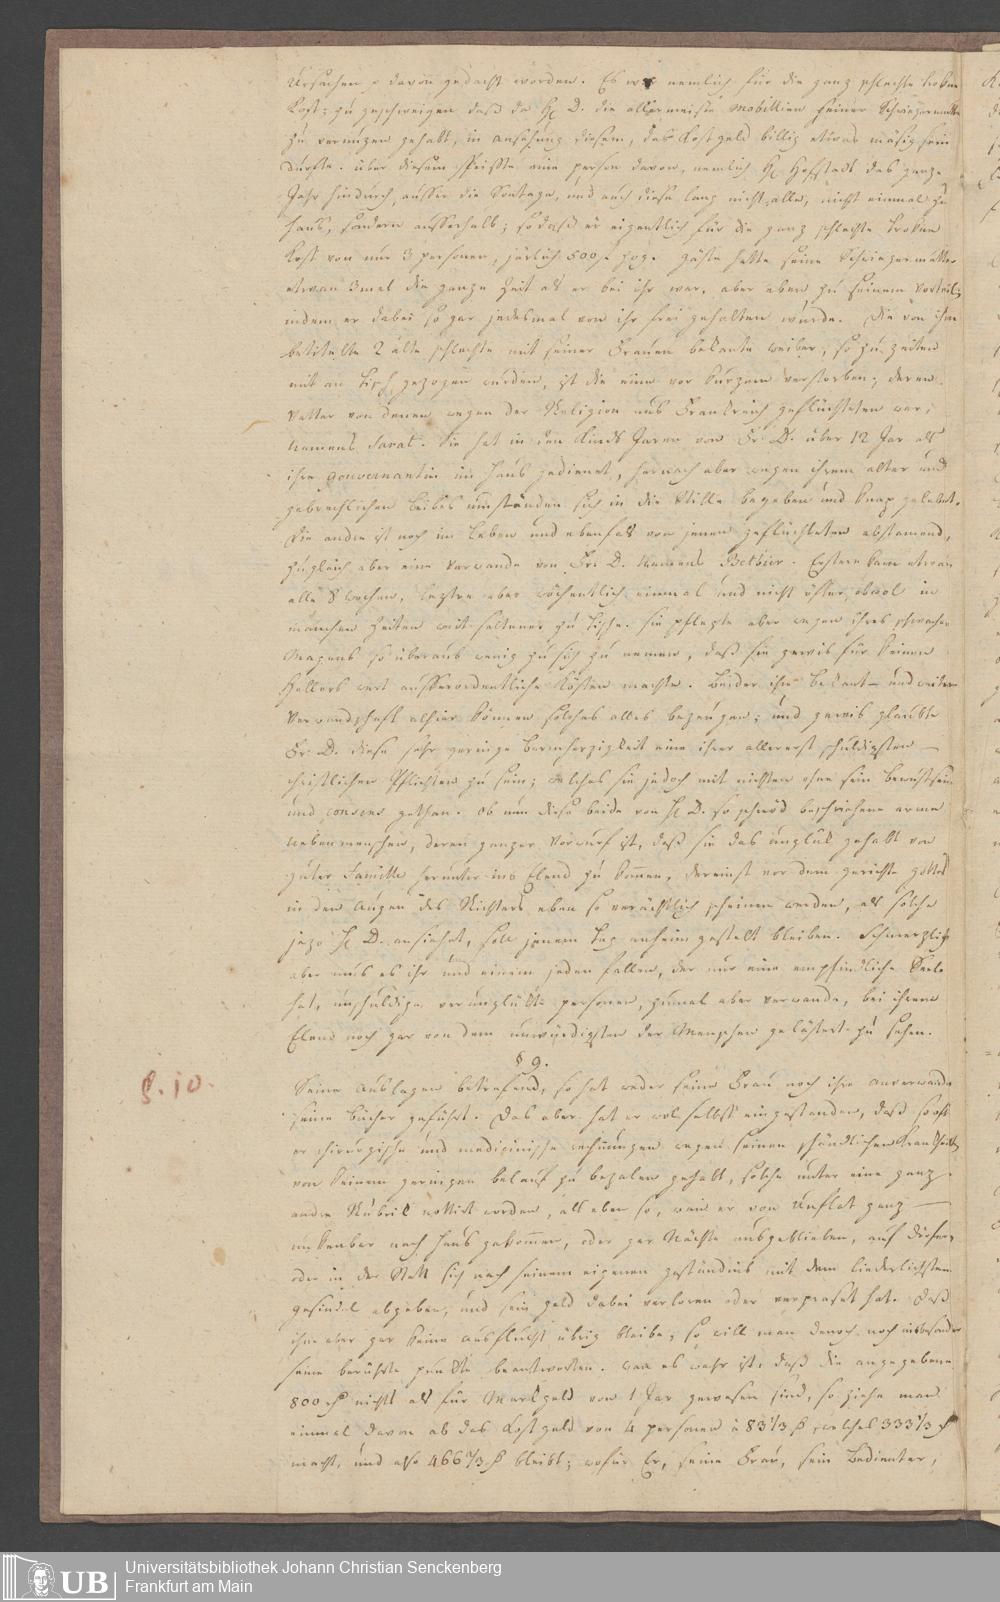 Ursachen p davon gedacht worden. Es war nemlich für die ganz schlechte trokne
Kost; zu geschweigen daß da H. D. die allermeiste Mobillien seiner Schwiegermutter
zu vernuzen gehabt, in ansehung diesem, das Kostgeld billig etwas mäsig sein
dürfte. über diesem speißte eine person davon, nemlich H. Hofstadt das ganze
Jahr hindurch, ausser die Sontage, und auch diese lang nicht alle, nicht einmal zu
haus, sondern ausserhalb; so daß er eigentlich für die ganz schlechte trokne
Kost von nur 3 personen, järlich 500 f. zog. Gäste hatte seine Schwiegermutter
etwan 3mal die ganze Zeit als er bei ihr war, aber eben zu seinem vorteil,
indem er dabei so gar jedesmal von ihr frei gehalten wurde. Die von ihm
betitelte 2 alte schlechte mit seiner Frauen bekante weiber, so zu zeiten
mit an tisch gezogen wurden, ist die eine vor kurzem verstorben, deren
Vatter von denen wegen der Religion aus Frankreich geflüchteten war,
Namens Sarat. Sie hat in den Kinds Jaren von Fr. D. über 12 Jar als
ihre gouvernantin im haus gedienet, hernach aber wegen ihrem alter und
gebrechlichen leibes umständen sich in die Stille begeben und knap gelebet.
Die andre ist noch im leben und ebenfals von jenen geflüchteten abstamend,
zugleich aber eine verwande von Fr. D. Namens Bethür. Erstere kam etwan
alle 8 wochen, leztre aber wöchentlich einmal und nicht öfter, obwol in
manchen Zeiten weit seltener zu tische. Sie pflegte aber wegen ihres schwachen
Magens so überaus wenig zu sich zu nemen, daß sie gewis für keinen
Hellers wert ausserordentliche Kösten machte. Beider ihre bekant- und weitere
Verwandschaft alhier können solches alles bezeugen; und gewis glaubte
Fr. D. diese sehr geringe barmherzigkeit eine ihrer allererst schuldigsten
christlichen Pflichten zu sein; welches sie jedoch mit nichten ohne sein bewustsein
und consens gethan. Ob nun diese beide von H. D. so schnöd beschriebene arme
nebenmenschen, deren ganzer vorwurf ist, daß sie das unglük gehabt von
guter Familie herunter ins Elend zu komen, dereinst vor dem gerichte gottes
in den augen des Richters eben so verächtlich scheinen werden, als solche
jezo H. D. ansiehet, soll jenem tag anheim gestelt bleiben. Schmerzlich
aber mus es ihr und einem jeden fallen, der nur eine empfindliche Seele
hat, unschuldige verunglükte personen, zumal aber verwande, bei ihrem
Elend noch gar von dem unwürdigsten der Menschen gelästert zu sehen.
§ 9.
§. 10.
Seine auslagen betrefend, so hat weder seine Frau noch ihre anverwande
seine bücher geführt. Das aber hat er wol selbst eingestanden, daß so oft
er chirurgische und medicinische rechnungen wegen seinen schändlichen Krankheiten
von keinem geringen belauf zu bezalen gehabt, solche unter eine ganz
andre Rubrik nottirt worden, als eben so, wan er von Unflat ganz
unkenbar nach haus gekommen, oder gar Nächte ausgeblieben, auf dörfern
oder in der Statt sich nach seinem eigenen geständnis mit dem liederlichsten
gesindel abgeben, und sein geld dabei verloren oder verprasset hat. Daß
ihm aber gar keine ausflucht übrig bleibe, so will man denoch noch insbesondre
seine berührte punkte beantworten. wan es wahr ist, daß die angegebene
800 f nichts als für Marktgeld von 1 Jar gewesen sind, so ziehe man
einmal davon ab das Kostgeld von 4 personen à 83 1/3 f, welches 333 1/3 f
macht, und also 466 2/3 f bleibt; wofür Er, seine Frau, sein Bedienter,
Universitätsbibliothek Johann Christian Senckenberg
Frankfurt am Main
UB